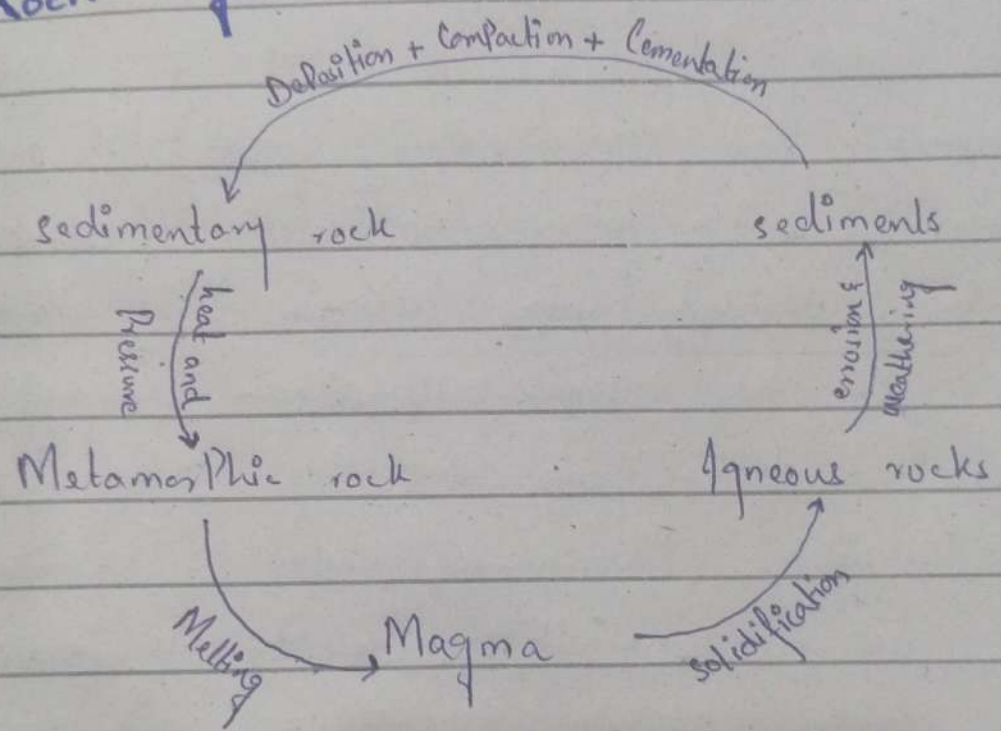 Deposition + Compaction + Cementation
sedimentary rock
sediments
heat and
Pressure
erosion &
weathering
Metamorphic rock
Igneous rocks
Melting
Magma
solidification